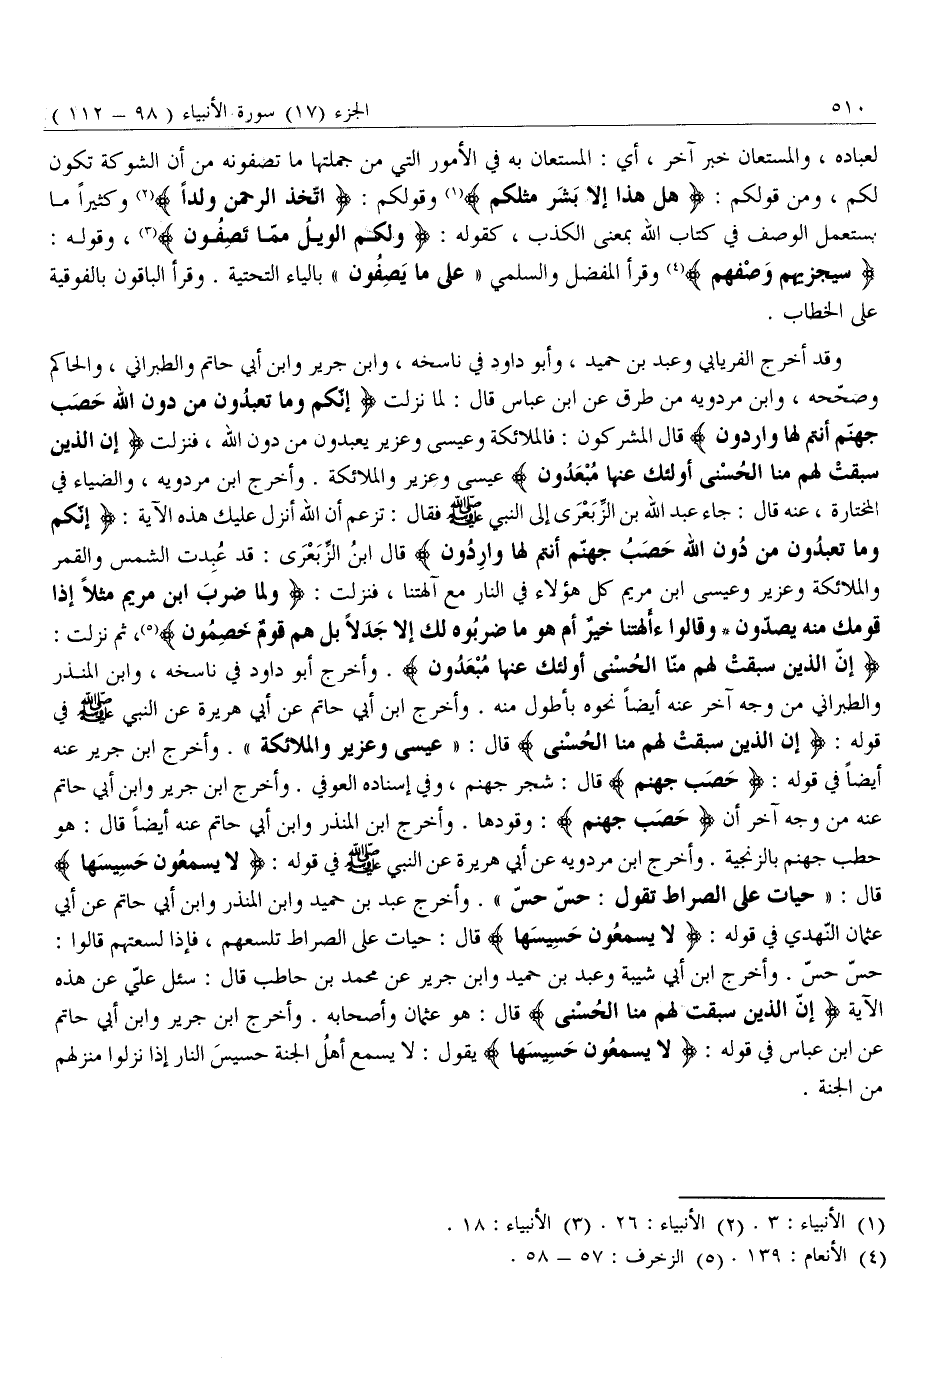 ٥١٠
الجزء (١٧) سورة الأنبياء ( ٩٨ – ١١٢ )
لعباده ، والمستعان خبر آخر ، أي : المستعان به في الأمور التي من جملتها ما تصفونه من أن الشوكة تكون
لكم ، ومن قولكم : ﴿ هل هذا إلا بَشَر مثلكم ﴾(١) وقولكم : ﴿ اتّخذ الرحمن ولداً ﴾(٢) وكثيراً ما
يستعمل الوصف في كتاب الله بمعنى الكذب ، كقوله : ﴿ ولكم الويلُ ممّا تَصِفُون ﴾(٣) ، وقوله :
﴿ سيجزيهم وَصْفهم ﴾(٤) وقرأ المفضل والسلمي « على ما يَصِفُون » بالياء التحتية . وقرأ الباقون بالفوقية
على الخطاب .
وقد أخرج الفريابي وعبد بن حميد ، وأبو داود في ناسخه ، وابن جرير وابن أبي حاتم والطبراني ، والحاكم
وصحّحه ، وابن مردويه من طرق عن ابن عباس قال : لما نزلت ﴿ إنّكم وما تعبدُون من دون الله حَصَب
جهنّم أنتم لها واردون ﴾ قال المشركون : فالملائكة وعيسى وعزير يعبدون من دون الله ، فنزلت ﴿ إن الذين
سبقتْ لهم منا الحُسْنى أولئك عنها مُبْعَدُون ﴾ عيسى وعزير والملائكة . وأخرج ابن مردويه ، والضياء في
المختارة ، عنه قال : جاء عبد الله بن الزِّبَعْرَى إلى النبي ﷺ فقال : تزعم أن الله أنزل عليك هذه الآية : ﴿ إنّكم
وما تعبدُون من دُون الله حَصَبُ جهنّم أنتم لها وارِدُون ﴾ قال ابنُ الزِّبَعْرَى : قد عُبِدت الشمس والقمر
والملائكة وعزير وعيسى ابن مريم كل هؤلاء في النار مع آلهتنا ، فنزلت : ﴿ ولما ضربَ ابن مريم مثلاً إذا
قومك منه يصدّون * وقالوا ءألهتنا خيرٌ أم هو ما ضربُوه لك إلا جَدَلاً بل هم قومٌ خَصِمُون ﴾(٥)، ثم نزلت :
﴿ إنّ الذين سبقتْ لهم منّا الحُسْنى أولئك عنها مُبْعَدُون ﴾ . وأخرج أبو داود في ناسخه ، وابن المنذر
والطبراني من وجه آخر عنه أيضاً نحوه بأطول منه . وأخرج ابن أبي حاتم عن أبي هريرة عن النبي ﷺ في
قوله : ﴿ إن الذين سبقتْ لهم منا الحُسْنى ﴾ قال : « عيسى وعزير والملائكة » . وأخرج ابن جرير عنه
أيضاً في قوله : ﴿ حَصَب جهنم ﴾ قال : شجر جهنم ، وفي إسناده العوفي . وأخرج ابن جرير وابن أبي حاتم
عنه من وجه آخر أن ﴿ حَصَب جهنم ﴾ : وقودها . وأخرج ابن المنذر وابن أبي حاتم عنه أيضاً قال : هو
حطب جهنم بالزنجية . وأخرج ابن مردويه عن أبي هريرة عن النبي ﷺ في قوله : ﴿ لا يسمعُون حَسِيسَها ﴾
قال : « حيات على الصراط تقول : حسّ حسّ » . وأخرج عبد بن حميد وابن المنذر وابن أبي حاتم عن أبي
عثمان النّهدي في قوله : ﴿ لا يسمعُون حَسِيسَها ﴾ قال : حيات على الصراط تلسعهم ، فإذا لسعتهم قالوا :
حسّ حسّ . وأخرج ابن أبي شيبة وعبد بن حميد وابن جرير عن محمد بن حاطب قال : سئل عليّ عن هذه
الآية ﴿ إنّ الذين سبقت لهم منا الحُسْنى ﴾ قال : هو عثمان وأصحابه . وأخرج ابن جرير وابن أبي حاتم
عن ابن عباس في قوله : ﴿ لا يسمعُون حَسِيسَها ﴾ يقول : لا يسمع أهلُ الجنة حسيسَ النار إذا نزلوا منزلهم
من الجنة .
(١) الأنبياء : ٣ . (٢) الأنبياء : ٢٦ . (٣) الأنبياء : ١٨ .
(٤) الأنعام : ١٣٩ . (٥) الزخرف : ٥٧ – ٥٨ .